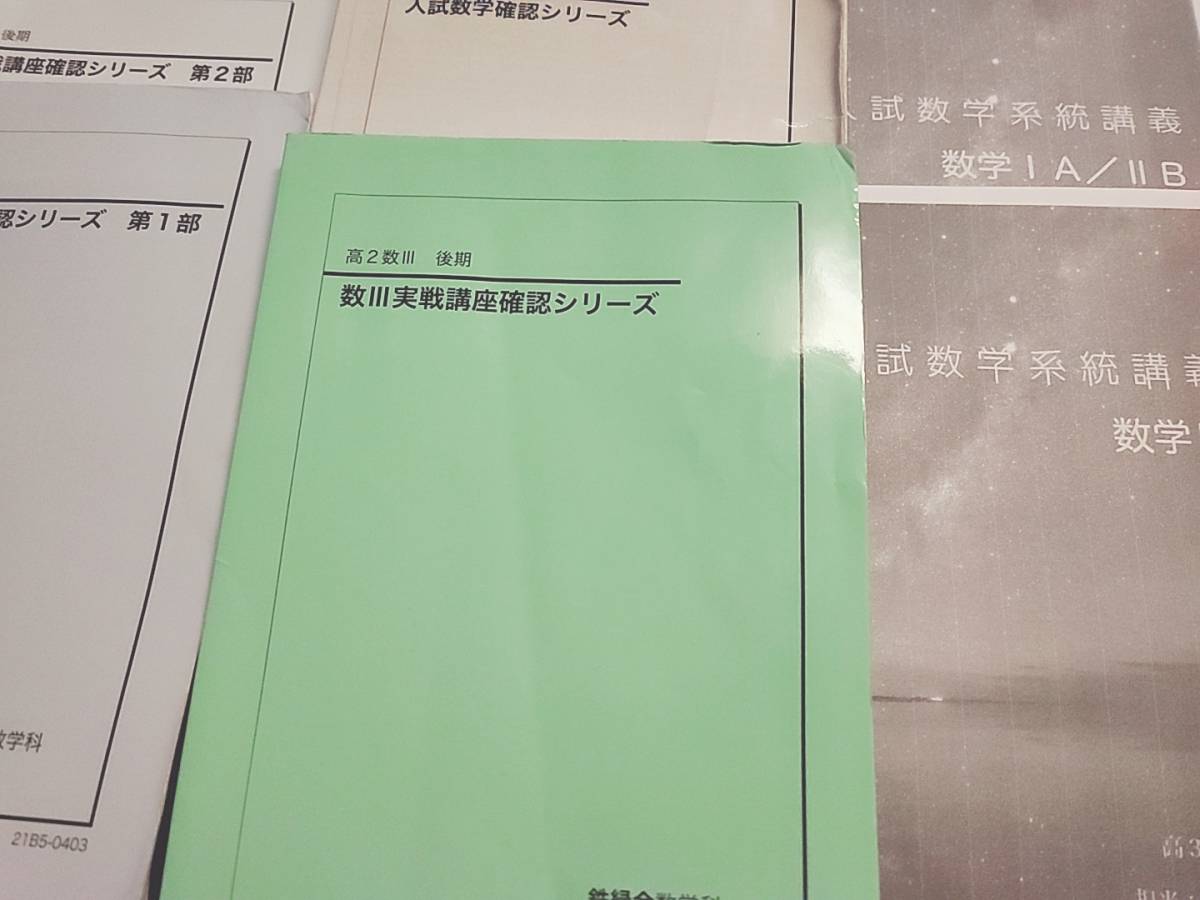 後期
講座確認シリーズ 第2部
認シリーズ 第1部
数学科
21B5-0403
入試数学確認シリーズ
高2数Ⅲ 後期
数Ⅲ実戦講座確認シリーズ
鉄緑会数学科
試数学系統講義
数学ⅠA/ⅡB
試数学系統講義
数学
高3